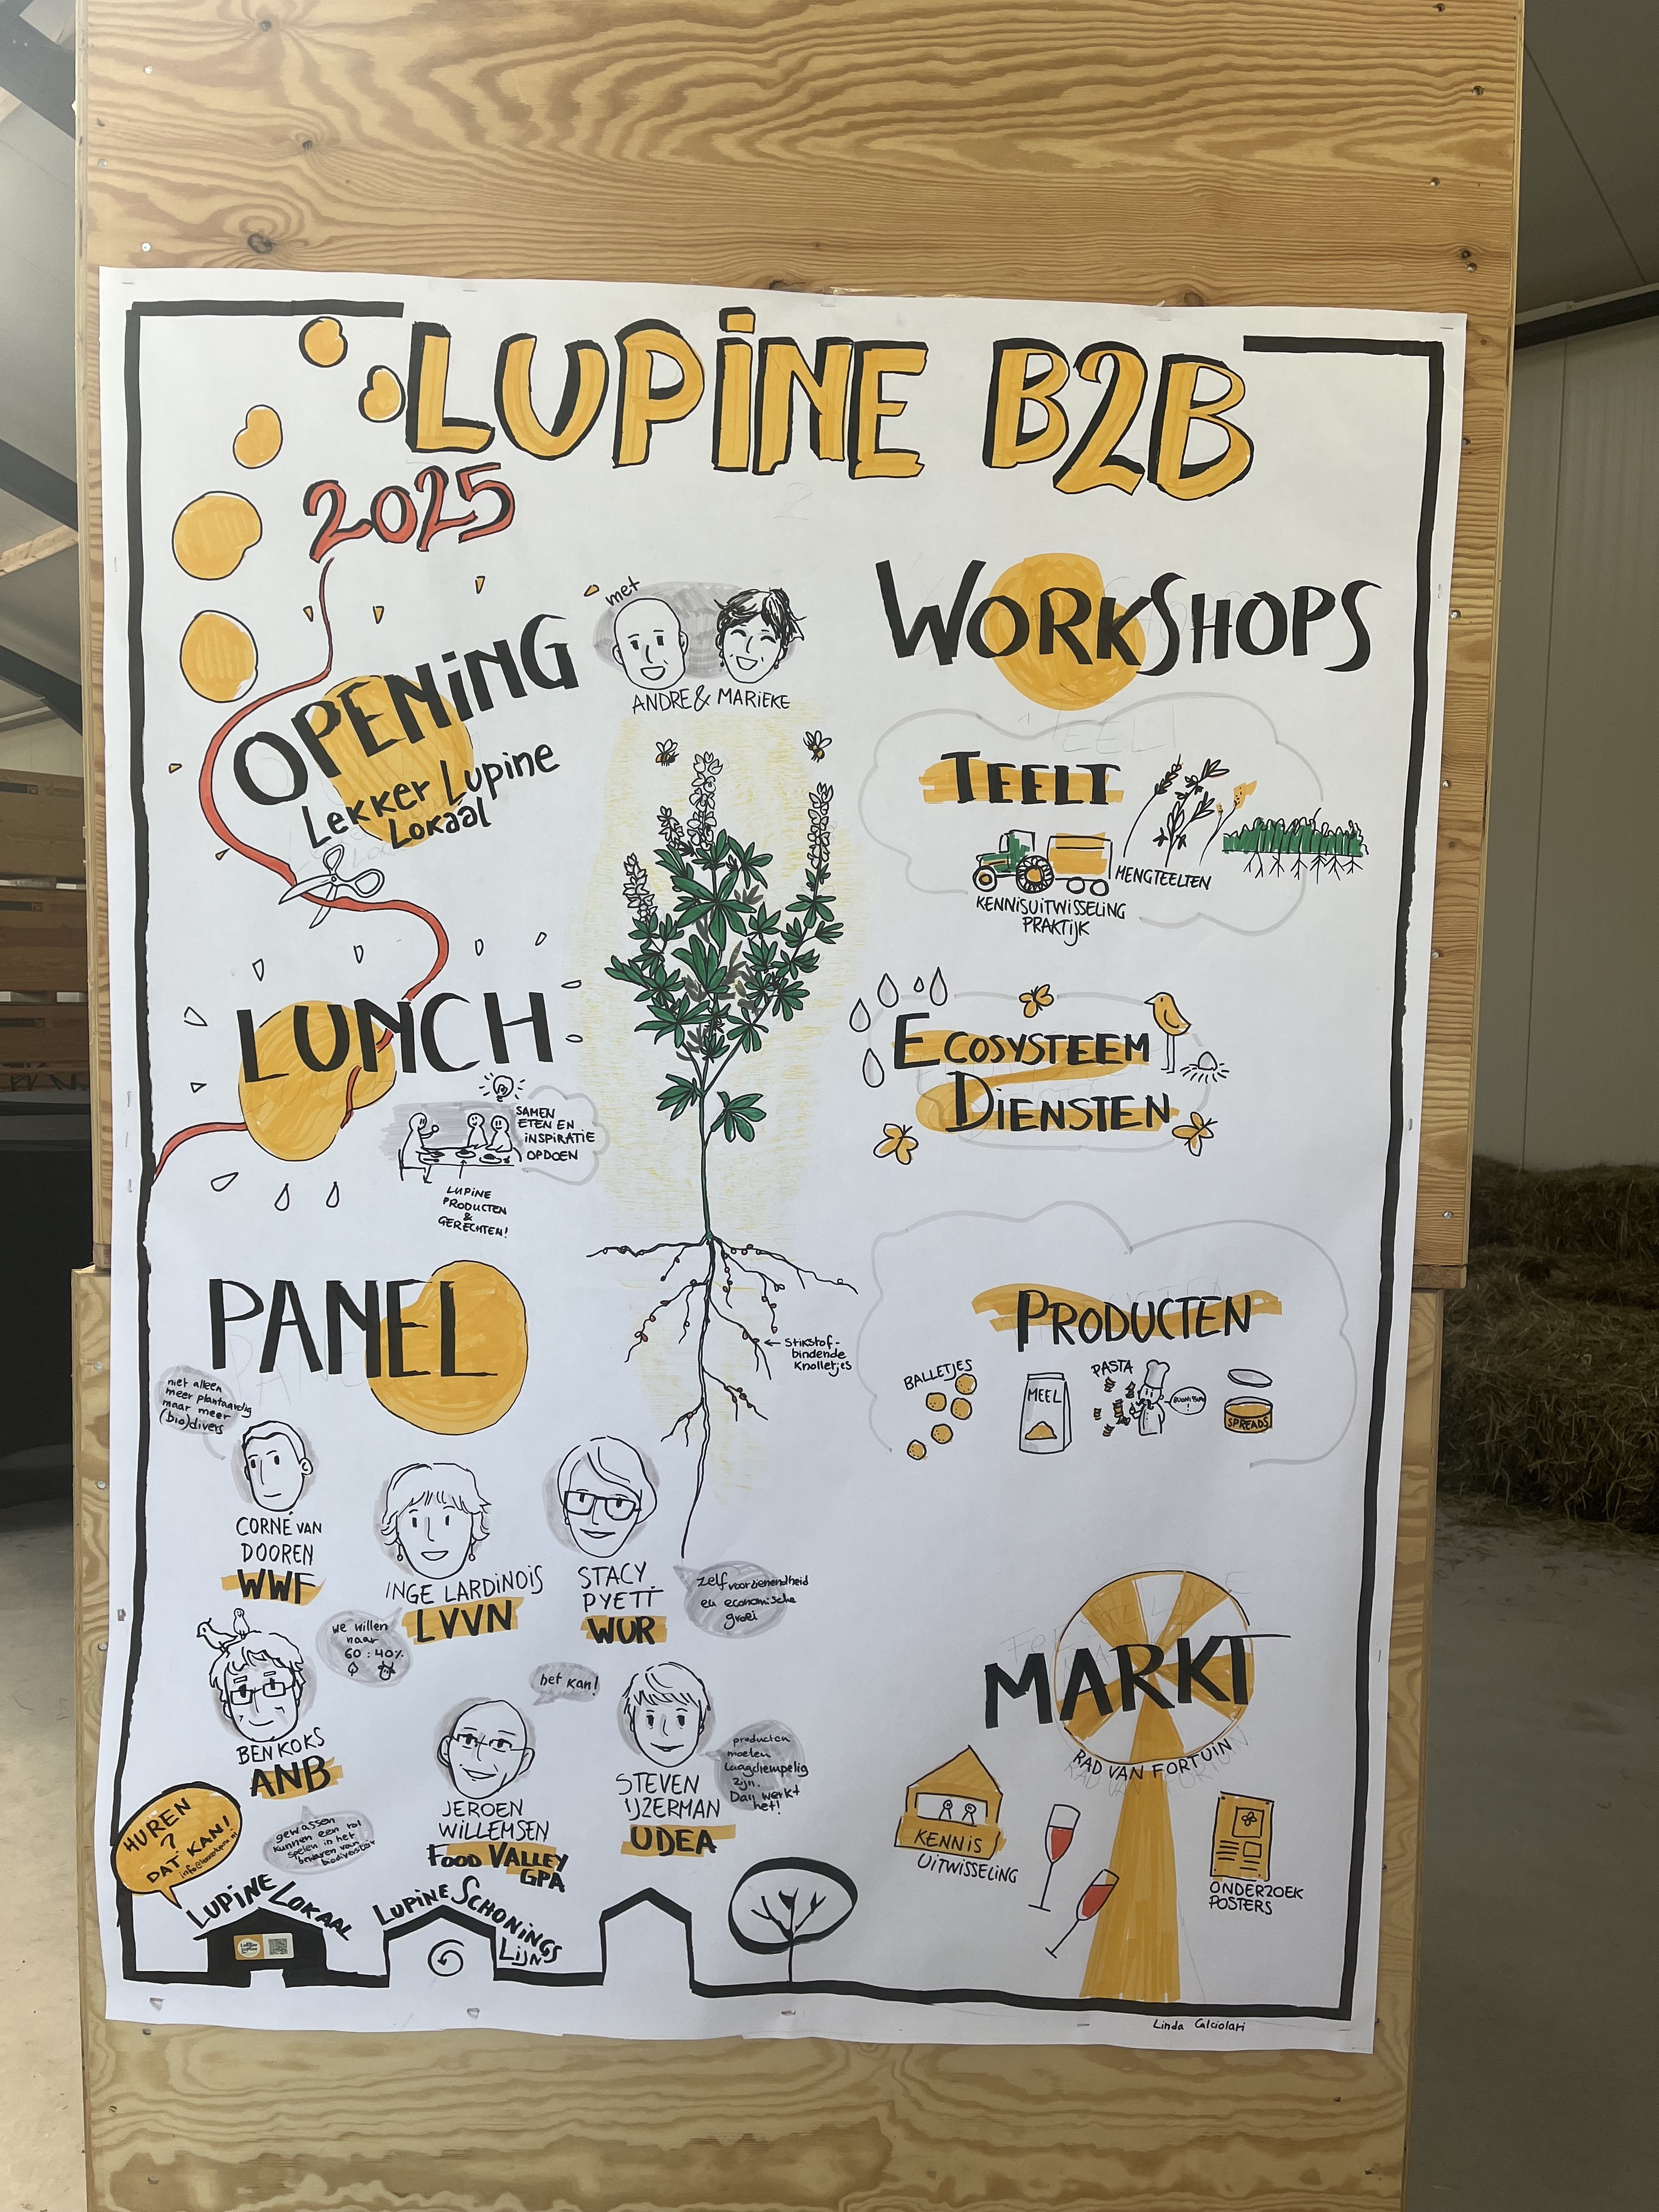 LUPINE B2B
2025
OPENING
Lekker Lupine
Lokaal
met
ANDRE & MARIEKE
LUNCH
SAMEN
ETEN EN
INSPIRATIE
OPDOEN
LUPINE
PRODUCTEN
&
GERECHTEN!
Stikstof-
bindende
Knolletjes
PANEL
niet alleen
meer plantaardig
maar meer
(bio)divers
CORNÉ VAN
DOOREN
WWF
INGE LARDINOIS
LVVN
we willen
naar
60 : 40%
STACY
PYETT
WUR
zelfvoorzienendheid
en economische
groei
BEN KOKS
ANB
gewassen
kunnen een rol
spelen in het
bewaren van
biodiversiteit
het kan!
JEROEN
WILLEMSEN
FOOD VALLEY
GPA
STEVEN
IJZERMAN
UDEA
producten
moeten
laagdrempelig
zijn.
Dan werkt
het!
HUREN
?
DAT KAN!
LUPINE LOKAAL
LUPINE SCHONINGS
LIJN
WORKSHOPS
TEELT
MENGTEELTEN
KENNISUITWISSELING
PRAKTIJK
ECOSYSTEEM
DIENSTEN
PRODUCTEN
BALLETJES
MEEL
PASTA
SPREADS
MARKT
RAD VAN FORTUIN
KENNIS
UITWISSELING
ONDERZOEK
POSTERS
Linda Calciolari